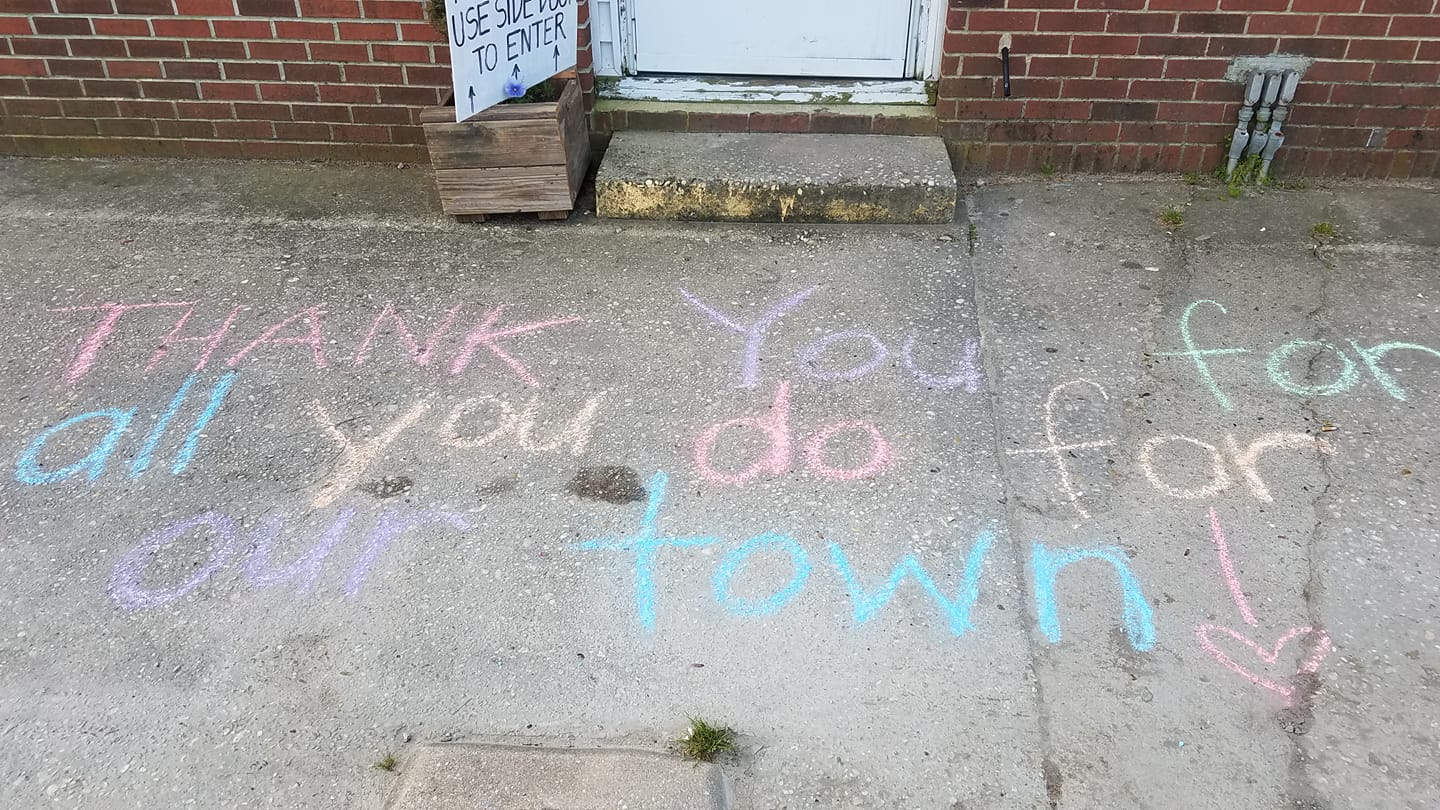 USE SIDE DOOR
TO ENTER
THANK You for
all you do far
our town!